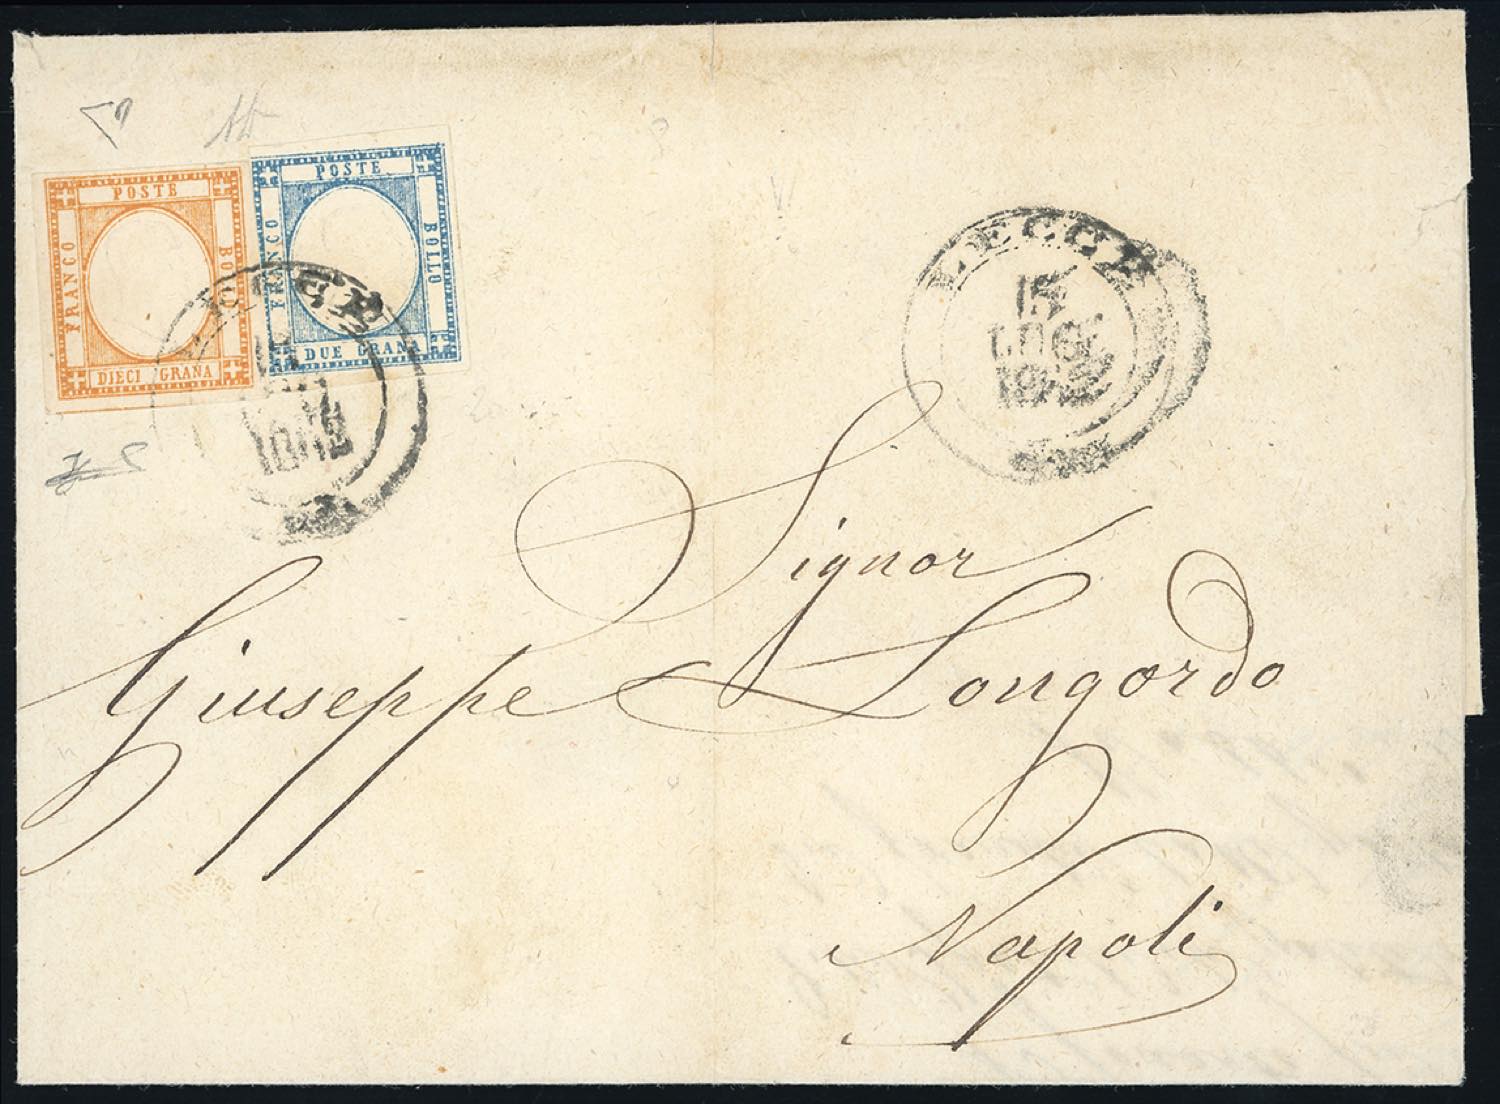 POSTE
FRANCO
BOLLO
DIECI GRANA
POSTE
FRANCO
BOLLO
DUE GRANA
LECCE
15
LUG
1862
LECCE
15
LUG
Signor
Giuseppe Longordo
Napoli